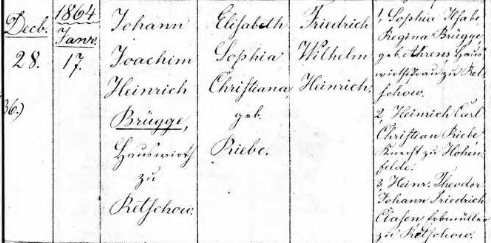 Decb.
28.
36.)
1864
Janr.
17.
Johann
Joachim
Heinrich
Brügge,
Hauswirth
zu
Retschow.
Elisabeth
Sophia
Christiana
geb.
Riebe.
Friedrich
Wilhelm
Heinrich.
1, Sophia Ilsabe
Regina Brügge
geb. Ahrens Haus
wirthsfrau zu Ret
schow.
2, Heinrich Carl
Christian Riebe
Knecht zu Hohen
felde.
3, Heinr. Theodor
Johann Friedrich
Clasen
zu Retschow.